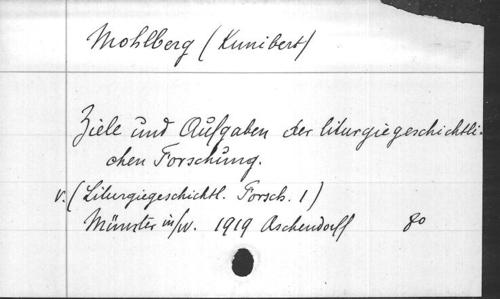 Mohlberg (Kunibert)
Ziele und Aufgaben der liturgiegeschichtli-
chen Forschung.
V. (Liturgiegeschichtl. Forsch. 1)
Münster i/W. 1919 Aschendorff 8o